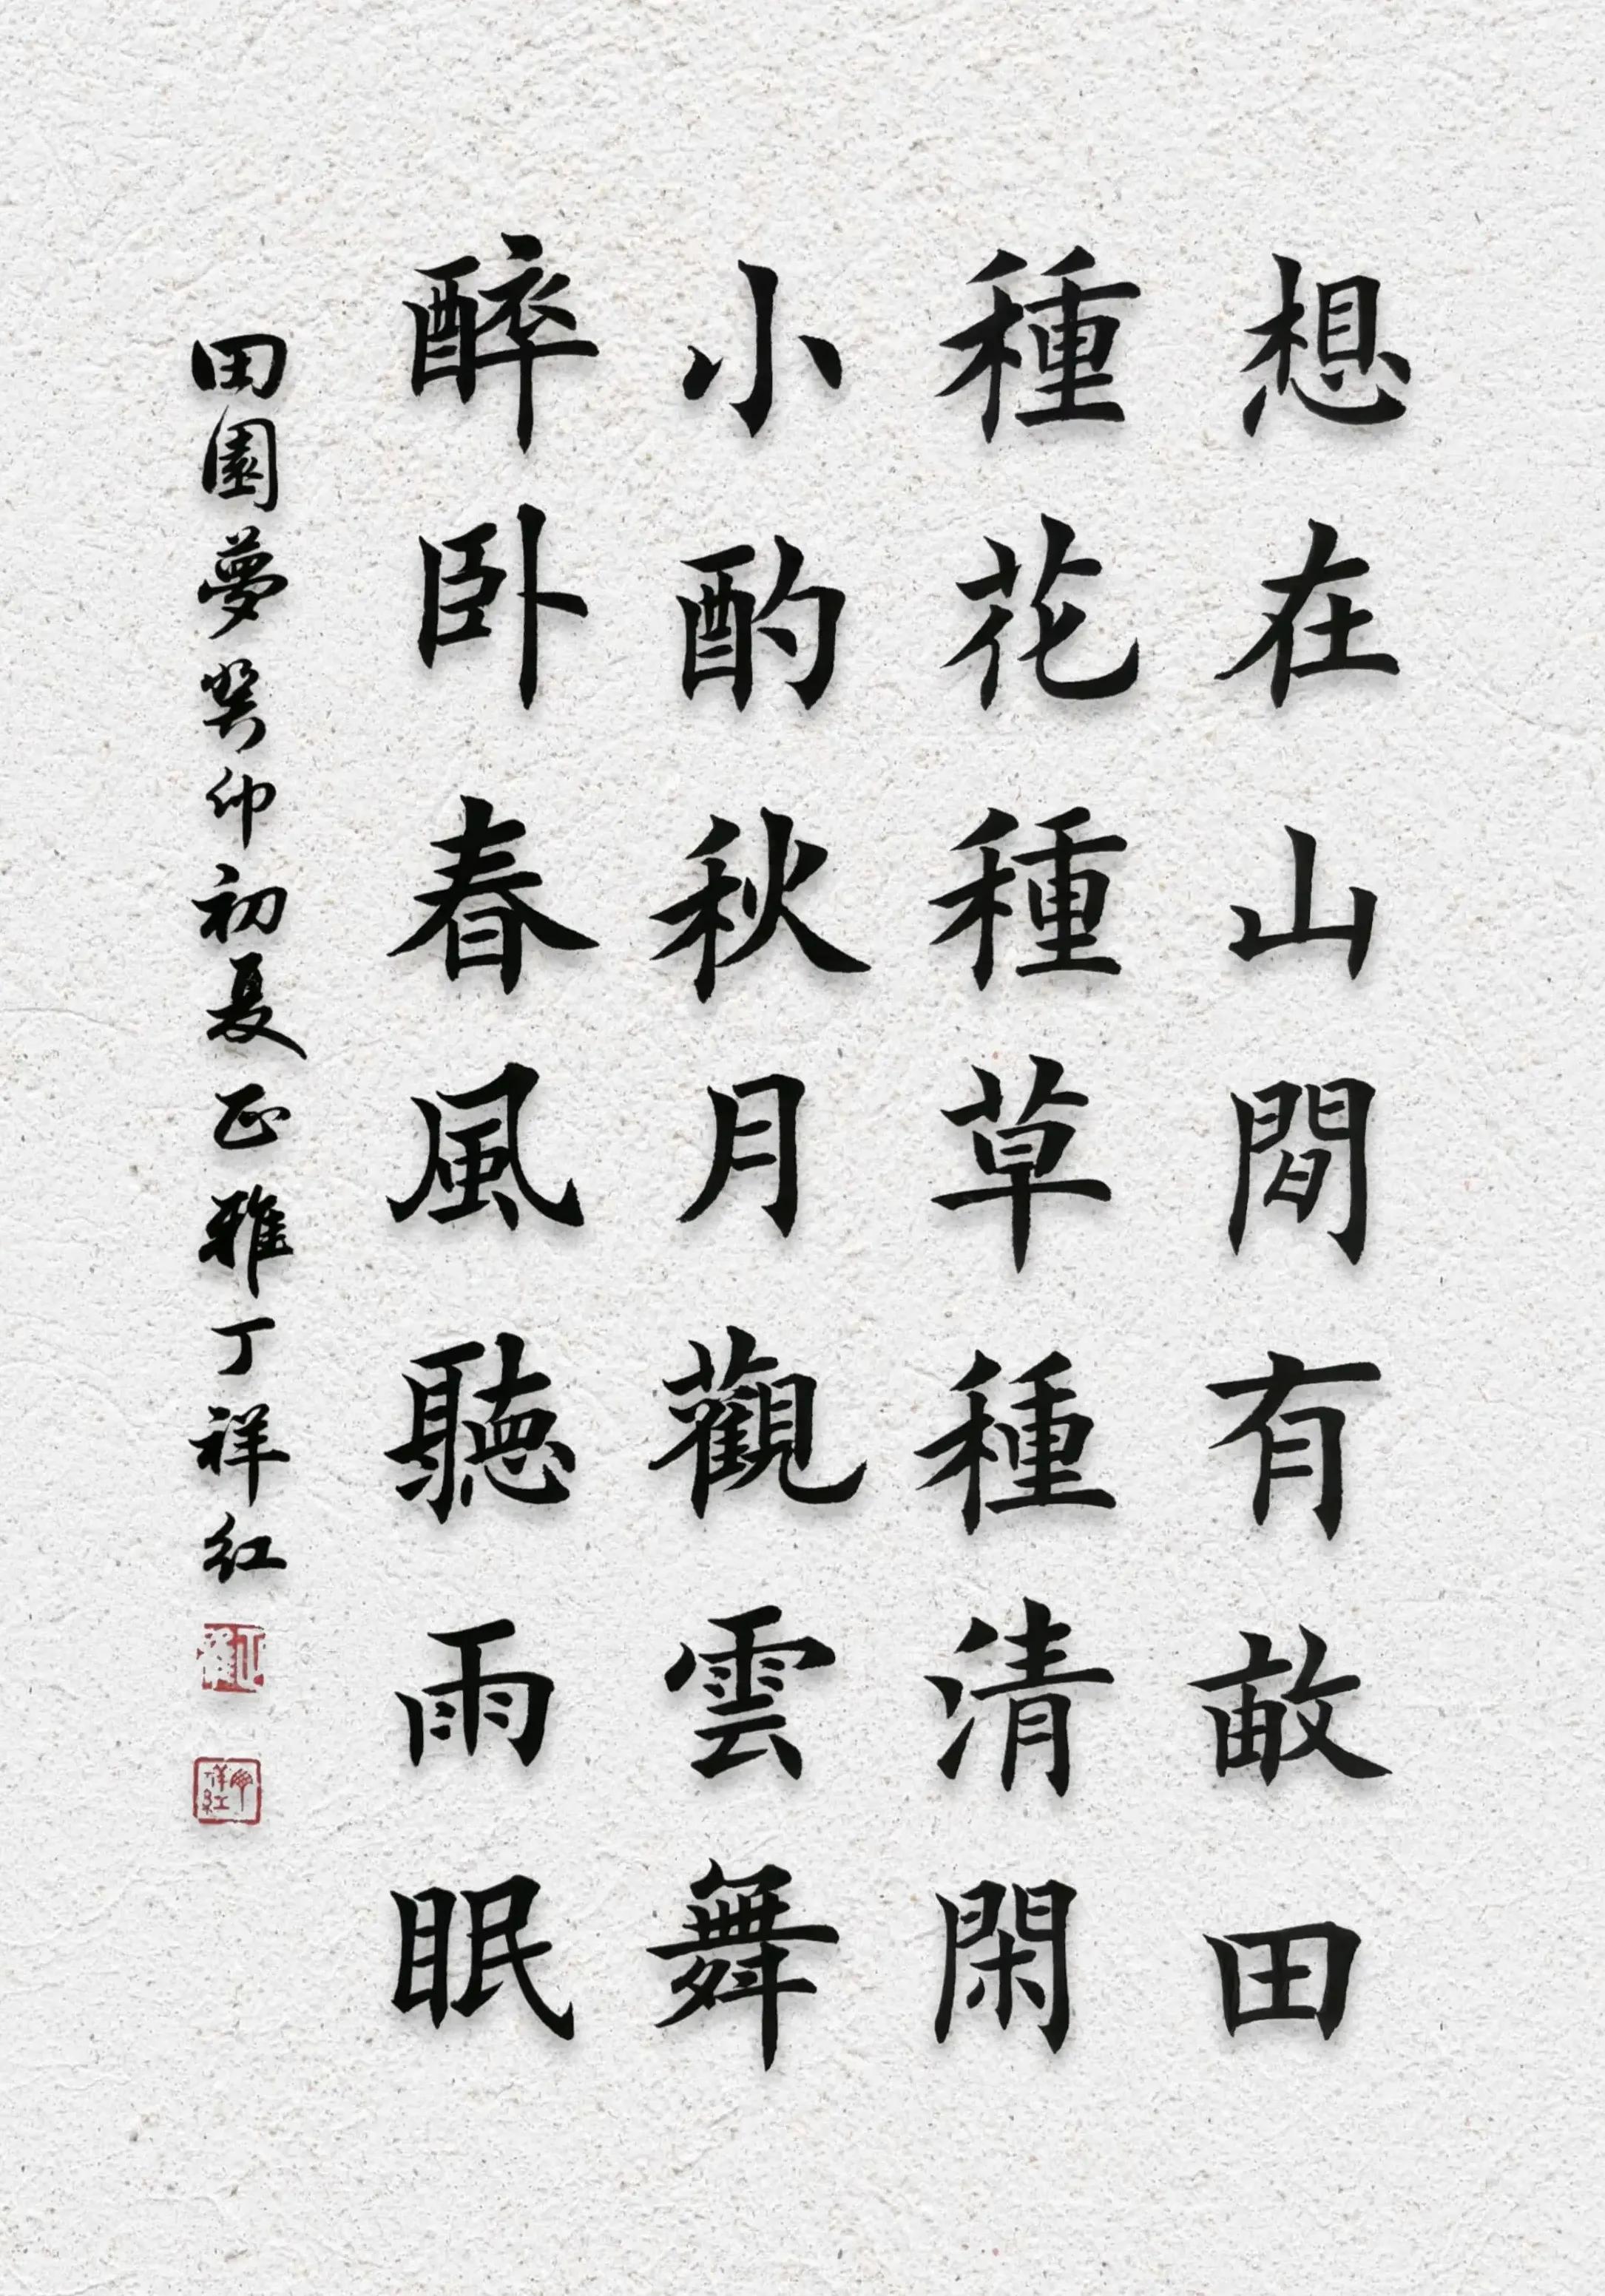 想在山間有畝田
種花種草種清閑
小酌秋月觀雲舞
醉卧春風聽雨眠
田園夢癸卯初夏正雅丁祥紅